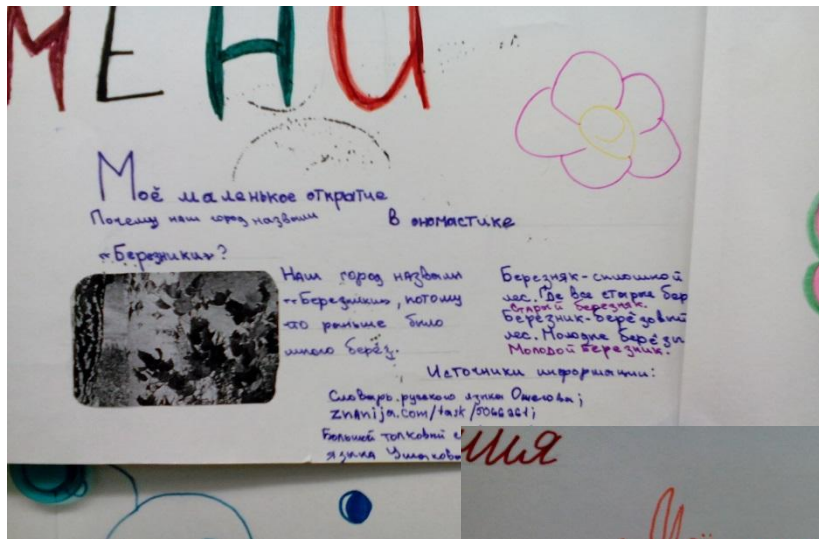 МЕНИ
Моё маленькое открытие
в ономастике
Почему наш город назвали
«Березники»?
Наш город назвали
«Березники», потому
что раньше было
много берёз.
Березняк-сплошной
лес. Где все старые бер
Старый березняк.
Березник-берёзовый
лес. Молодые берёзы
Молодой березник.
Источники информации:
Словарь русского языка Ожегова;
znanija.com/task/5066261;
Большой толковый с
языка Ушаков
ция